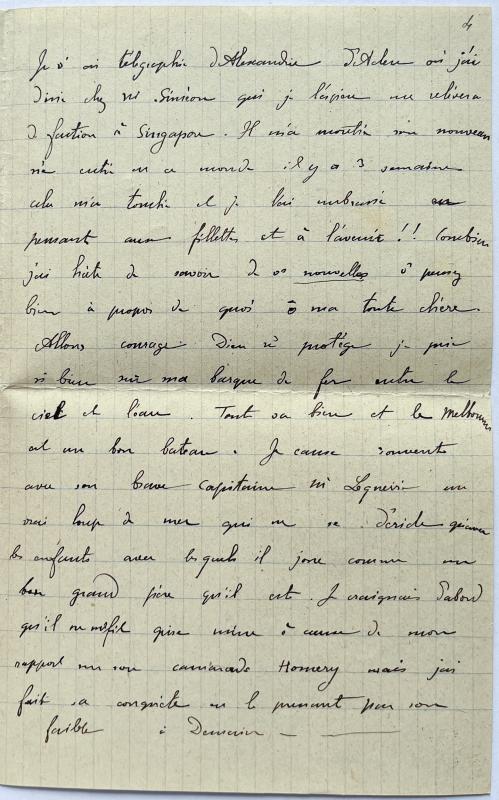 4
Je t'ai télégraphié d'Alexandrie d'Aden où j'ai
diné chez Mr Siméon qui je l'espère me relèvera
de faction à Singapore. Il m'a montré son nouveau
né entré en ce monde il y a 3 semaines
cela m'a touché et je l'ai embrassé en
pensant aux fillettes et à l'avenir !! Combien
j'ai hâte de savoir de vos nouvelles
bien à propos de quoi ô ma toute chère.
Allons courage Dieu te protège je prie
si bien sur ma barque de fer entre le
ciel et l'eau. Tout va bien et le Melbourne
est un bon bateau. Je cause souvent
avec son brave capitaine Mr un
vrai loup de mer qui ne se déride qu'avec
les enfants avec lesquels il joue comme un
bon grand père qu'il est. Je craignais d'abord
qu'il ne me fit grise mine à cause de mon
rapport sur son camarade Homery mais j'ai
fait sa conquête en le prenant par son
faible à Demain